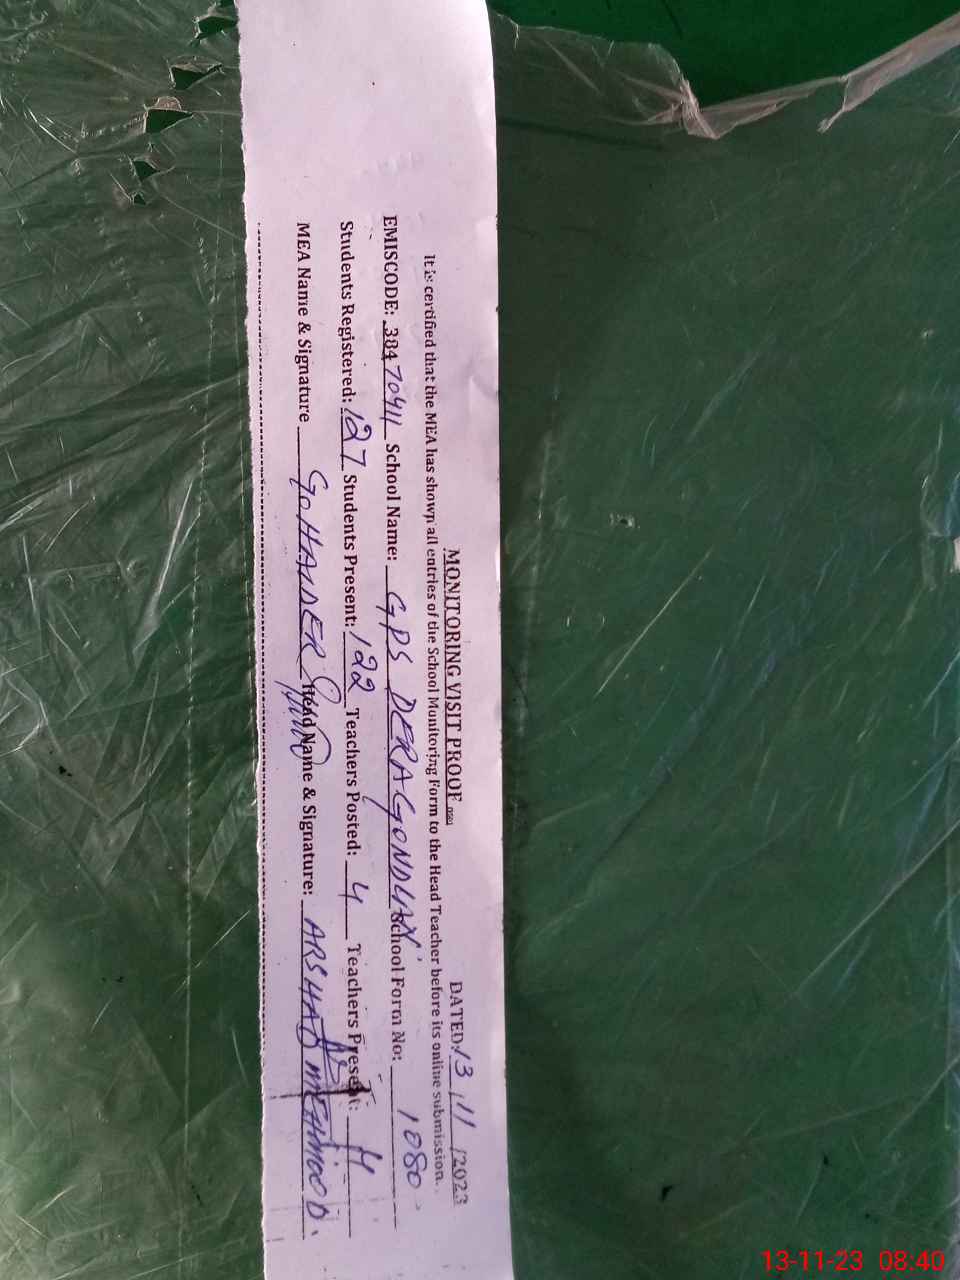 MONITORING VISIT PROOF DATED: 13/11/2023
It is certified that the MEA has shown all entries of the School Monitoring Form to the Head Teacher before its online submission.
EMISCODE: 38470411 School Name: GPS DERA GONDLAN School Form No: 1080
Students Registered: 127 Students Present: 122 Teachers Posted: 4 Teachers Present: 4
MEA Name & Signature G. HAIDER Head Name & Signature: ARSHAD MEHMOOD.
13-11-23 08:40